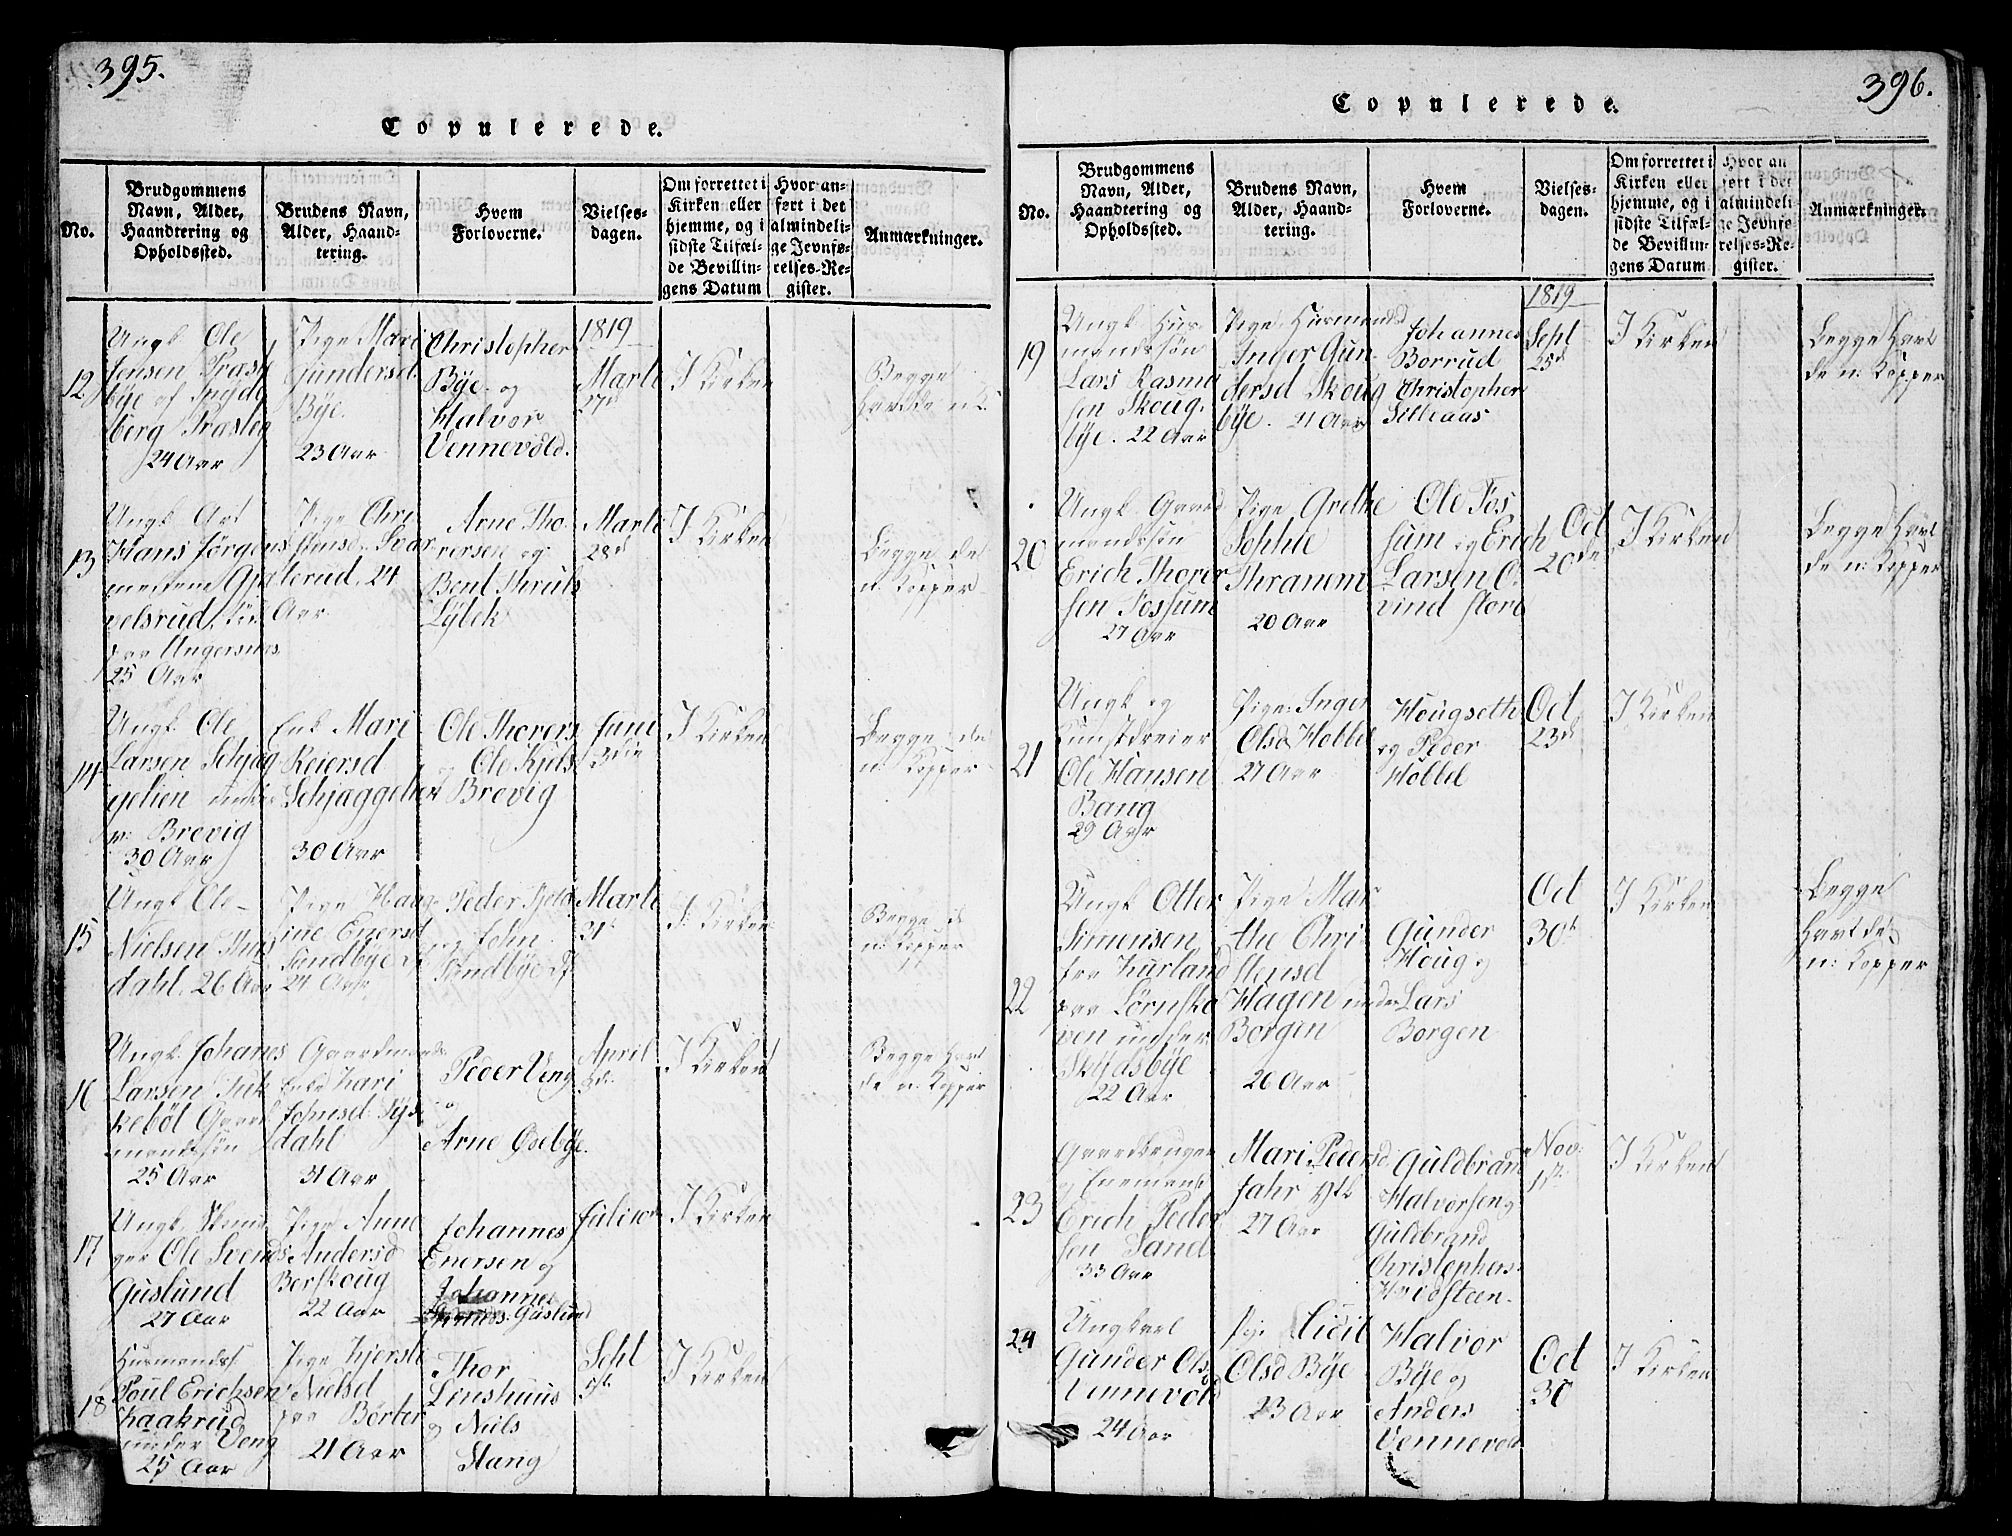 395.
Copulerede.
No.
Brudgommens
Navn, Alder,
Haandtering og
Opholdssted.
Brudens Navn,
Alder, Haand-
tering.
Hvem
Forloverne.
Vielses-
dagen.
Om forrettet i
Kirken eller
hjemme, og i
sidste Tilfæl-
de Bevillin-
gens Datum
Hvor an-
ført i det
almindeli-
ge Jevnfø-
relses-Re-
gister.
Anmærkninger.
12
Ungk. Ole
Jensen
bye af
berg
24 Aar
Pige Mari
Gundersd
Bye.
23 Aar
Christopher
Bye og
Halvor
Vennevold.
1819
Marti
27d
I Kirken
Begge
havde n. K.
13
Ungk.
Hans Jørgens
25 Aar
Pige Chri
24
Aar
Arne Tho
rersen og
Bent
Lybek
Marti
28d
I Kirken
Begge de
n: Kopper
14
Ungk. Ole
Larsen Schjag
gelien under
Brevig
30 Aar
Enk. Mari
Reiersd
Schjaggelien
30 Aar
Ole Thorers
og Ole
Brevig
Juni
I Kirken
Begge de
n: Kopper
15
Ungk. Ole
Nielsen
dahl. 26 Aar
Pige
Enersd
Sandbye
24 Aar
Peder
og John
Sandbye
Marti
31t
I Kirken
Begge de
n: Kopper
16
Ungk. Johanes
Larsen
kebøl Gaard
mandssøn
25 Aar
Gaardmands
Enke Kari
Johnsd
dahl
31 Aar
Peder Ueng
og
Arne Osebye.
April
I Kirken
Begge Havt
de n. Kopper
17
Ungk.
Ole Svends
Guslund
27 Aar
Pige Anne
Andersd
Berskoug
22 Aar
Johannes
Enersen og
Johannes
Guslund
Juli
I Kirken
18
Husmandss.
Poul Ericksen
Kaakrud
under Veng
25 Aar
Pige Kjersti
Nielsd
paa Børter
21 Aar
Thor
Linshuus
og Niels
Hang
Sept
I Kirken
396.
Copulerede.
No.
Brudgommens
Navn, Alder,
Haandtering og
Opholdssted.
Brudens Navn,
Alder, Haand-
tering.
Hvem
Forloverne.
Vielses-
dagen.
Om forrettet i
Kirken eller
hjemme, og i
sidste Tilfæl-
de Bevillin-
gens Datum
Hvor an
ført i det
almindeli-
ge Jevnfø-
relses-Re-
gister.
Anmærkninger.
19
Ungk. Hus-
mandssøn
Lars Rasmu
sen Skoug-
bye. 22 Aar
Pige Husmands
Inger Gun-
dersd Skoug
bye. 21 Aar
Johannes
Borrud
Christopher
Silleaas
1819
Sept
25d
I Kirken
Begge Havt
de n: Kopper
20
Ungk. Gaard
mandssøn
Erich Thorer
sen Fossum
27 Aar
Pige Grethe
Sophie
Thranem
20 Aar
Ole Fos
sum og Erich
Larsen O
vind store
Oct
20de
I Kirken
Begge Havt
de n: Kopper
21
Ungk og
Kunstdreier
Ole Hansen
Bang
29 Aar
Pige: Inger
Olsd Hobbel
27 Aar
Hougseth
og Peder
Hobbel
Oct
23d
I Kirken
22
Ungk Otter
Simensen
fra Kurland
paa Tørnsko
ven under
Skydsbye
22 Aar
Pige Mar
the Chri
stensd
Hagen under
Borgen
26 Aar
Gunder
Houg og
Lars
Borgen
Oct
30t
I Kirken
Begge
Havt de
n: Kopper
23
Gaardbruger
og Enemand
Erich Peder
sen Sand
33 Aar
Mari Peiersd
Jahr
27 Aar
Guldbrand
Halvorsen og
Guldbrand
Christophers
Hvidsteen.
Nov:
1st
I Kirken
24
Ungkarl
Gunder Ols
Vennevold
24 Aar
Pige Sidil
Olsd Bye
23 Aar
Halvor
Bye og
Anders
Vennevold
Oct
30
I Kirken